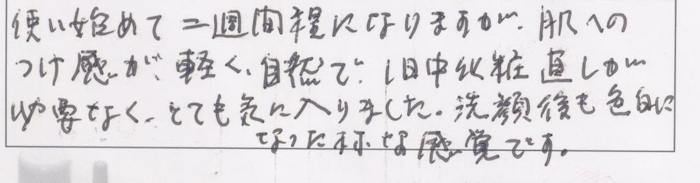 使い始めて二週間程になりますが、肌への
つけ感が、軽く、自然で、1日中化粧直しが
必要なく、とても気に入りました。洗顔後も色白に
なった様な感覚です。